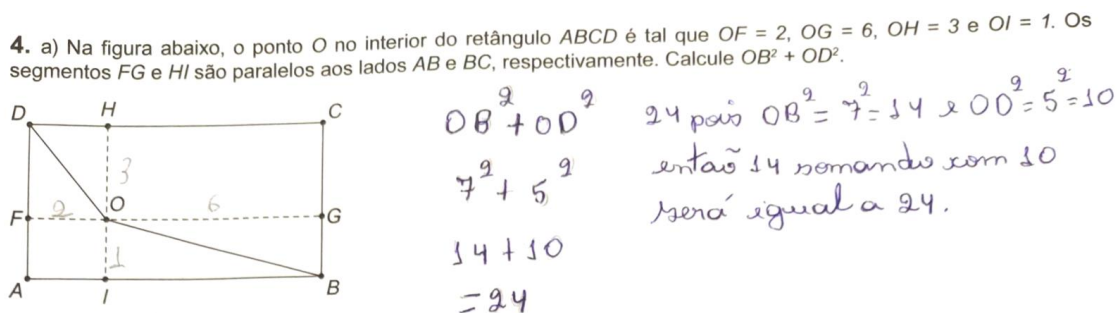 4. a) Na figura abaixo, o ponto O no interior do retângulo ABCD é tal que OF = 2, OG = 6, OH = 3 e OI = 1. Os
segmentos FG e HI são paralelos aos lados AB e BC, respectivamente. Calcule OB² + OD².
D H C
3
F 2 O 6 G
1
A I B
OB² + OD²
7² + 5²
14 + 10
= 24
24 pois OB² = 7² = 14 e OD² = 5² = 10
então 14 somando com 10
será igual a 24.